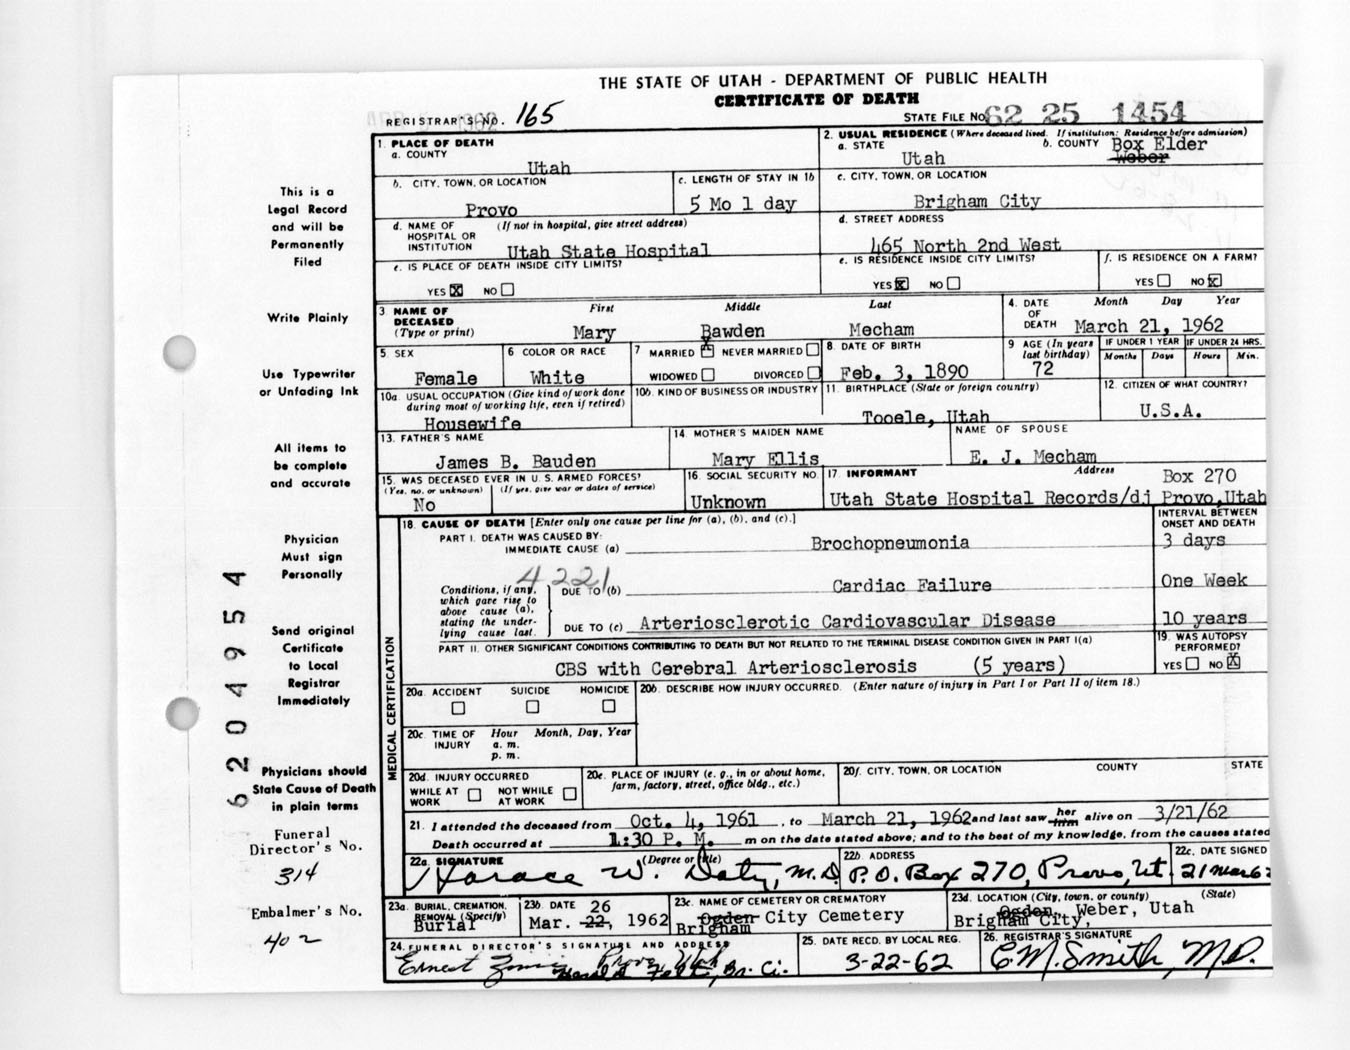 THE STATE OF UTAH - DEPARTMENT OF PUBLIC HEALTH
CERTIFICATE OF DEATH
REGISTRAR'S NO. 165
STATE FILE NO. 62 25 1454
1. PLACE OF DEATH
a. COUNTY
Utah
2. USUAL RESIDENCE (Where deceased lived. If institution: Residence before admission)
a. STATE
Utah
b. COUNTY Box Elder
Weber
b. CITY, TOWN, OR LOCATION
Provo
c. LENGTH OF STAY IN 1b
5 Mo 1 day
c. CITY, TOWN, OR LOCATION
Brigham City
d. NAME OF HOSPITAL OR INSTITUTION
(If not in hospital, give street address)
Utah State Hospital
d. STREET ADDRESS
465 North 2nd West
e. IS PLACE OF DEATH INSIDE CITY LIMITS?
YES NO
e. IS RESIDENCE INSIDE CITY LIMITS?
YES NO
f. IS RESIDENCE ON A FARM?
YES NO
3. NAME OF DECEASED (Type or print)
First Middle Last
Mary Bawden Mecham
4. DATE OF DEATH
Month Day Year
March 21, 1962
5. SEX
Female
6 COLOR OR RACE
White
7 MARRIED NEVER MARRIED
WIDOWED DIVORCED
8. DATE OF BIRTH
Feb. 3, 1890
9 AGE (In years last birthday)
72
IF UNDER 1 YEAR
Months Days
IF UNDER 24 HRS.
Hours Min.
10a. USUAL OCCUPATION (Give kind of work done during most of working life, even if retired)
Housewife
10b. KIND OF BUSINESS OR INDUSTRY
11. BIRTHPLACE (State or foreign country)
Tooele, Utah
12. CITIZEN OF WHAT COUNTRY?
U.S.A.
13. FATHER'S NAME
James B. Bauden
14. MOTHER'S MAIDEN NAME
Mary Ellis
NAME OF SPOUSE
E. J. Mecham
15. WAS DECEASED EVER IN U. S. ARMED FORCES?
(Yes, no, or unknown) (If yes, give war or dates of service)
No
16. SOCIAL SECURITY NO.
Unknown
17. INFORMANT Address
Box 270
Utah State Hospital Records/dj Provo,Utah
MEDICAL CERTIFICATION
18. CAUSE OF DEATH [Enter only one cause per line for (a), (b), and (c).]
INTERVAL BETWEEN ONSET AND DEATH
PART I. DEATH WAS CAUSED BY:
IMMEDIATE CAUSE (a) Brochopneumonia 3 days
4221
Conditions, if any, which gave rise to above cause (a), stating the underlying cause last.
DUE TO (b) Cardiac Failure One Week
DUE TO (c) Arteriosclerotic Cardiovascular Disease 10 years
PART II. OTHER SIGNIFICANT CONDITIONS CONTRIBUTING TO DEATH BUT NOT RELATED TO THE TERMINAL DISEASE CONDITION GIVEN IN PART I(a)
CBS with Cerebral Arteriosclerosis (5 years)
19. WAS AUTOPSY PERFORMED?
YES NO
20a. ACCIDENT SUICIDE HOMICIDE
20b. DESCRIBE HOW INJURY OCCURRED. (Enter nature of injury in Part I or Part II of item 18.)
20c. TIME OF INJURY
Hour Month, Day, Year
a. m.
p. m.
20d. INJURY OCCURRED
WHILE AT WORK NOT WHILE AT WORK
20e. PLACE OF INJURY (e. g., in or about home, farm, factory, street, office bldg., etc.)
20f. CITY, TOWN, OR LOCATION COUNTY STATE
21. I attended the deceased from Oct. 4, 1961, to March 21, 1962 and last saw her him alive on 3/21/62
Death occurred at 1:30 P. M. m on the date stated above; and to the best of my knowledge, from the causes stated
22a. SIGNATURE (Degree or title)
Horace W. Daty, M.D.
22b. ADDRESS
P.O. Box 270, Provo, Ut.
22c. DATE SIGNED
21 Mar 62
23a. BURIAL, CREMATION, REMOVAL (Specify)
Burial
23b. DATE 26
Mar. 22, 1962
23c. NAME OF CEMETERY OR CREMATORY
Ogden City Cemetery
Brigham
23d. LOCATION (City, town, or county) (State)
Ogden, Weber, Utah
Brigham City,
24. FUNERAL DIRECTOR'S SIGNATURE AND ADDRESS
Ernest Provo, Utah
Br. Ci.
25. DATE RECD. BY LOCAL REG.
3-22-62
26. REGISTRAR'S SIGNATURE
C M. Smith, M.D.
This is a
Legal Record
and will be
Permanently
Filed
Write Plainly
Use Typewriter
or Unfading Ink
All items to
be complete
and accurate
Physician
Must sign
Personally
Send original
Certificate
to Local
Registrar
Immediately
Physicians should
State Cause of Death
in plain terms
Funeral
Director's No.
314
Embalmer's No.
402
6204954